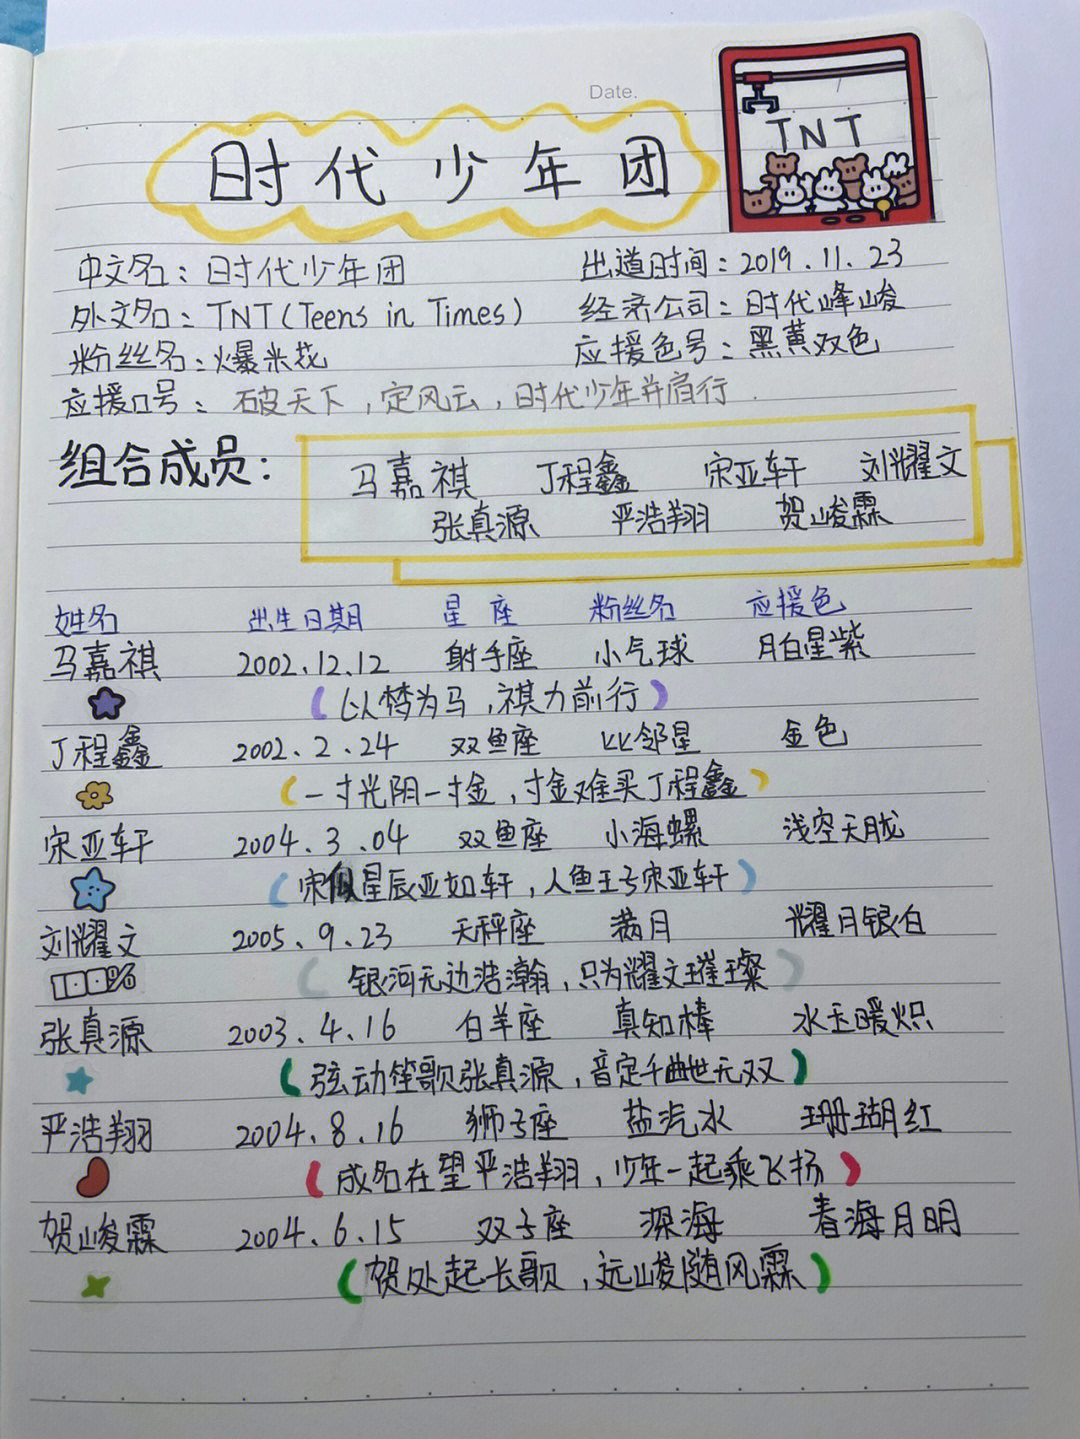 Date.
TNT
时代少年团
中文名：时代少年团 出道时间：2019.11.23
外文名：TNT(Teens in Times) 经济公司：时代峰峻
粉丝名：爆米花 应援色号：黑黄双色
应援口号：破天下，定风云，时代少年并肩行.
组合成员：
马嘉祺 丁程鑫 宋亚轩 刘耀文
张真源 严浩翔 贺峻霖
姓名 出生日期 星座 粉丝名 应援色
马嘉祺 2002.12.12 射手座 小气球 月白星紫
（以梦为马，祺力前行）
丁程鑫 2002.2.24 双鱼座 比邻星 金色
（一寸光阴一寸金，寸金难买丁程鑫）
宋亚轩 2004.3.04 双鱼座 小海螺 浅空天胧
（宋似星辰亚如轩，人鱼王子宋亚轩）
刘耀文 2005.9.23 天秤座 满月 耀月银白
100%
（银河无边浩瀚，只为耀文璀璨）
张真源 2003.4.16 白羊座 真知棒 水玉暖炽
（弦动笙歌张真源，音定千曲世无双）
严浩翔 2004.8.16 狮子座 盐汽水 珊瑚红
（成名在望严浩翔，少年一起乘飞扬）
贺峻霖 2004.6.15 双子座 深海 春海月明
（贺处起长歌，远峻随风霖）